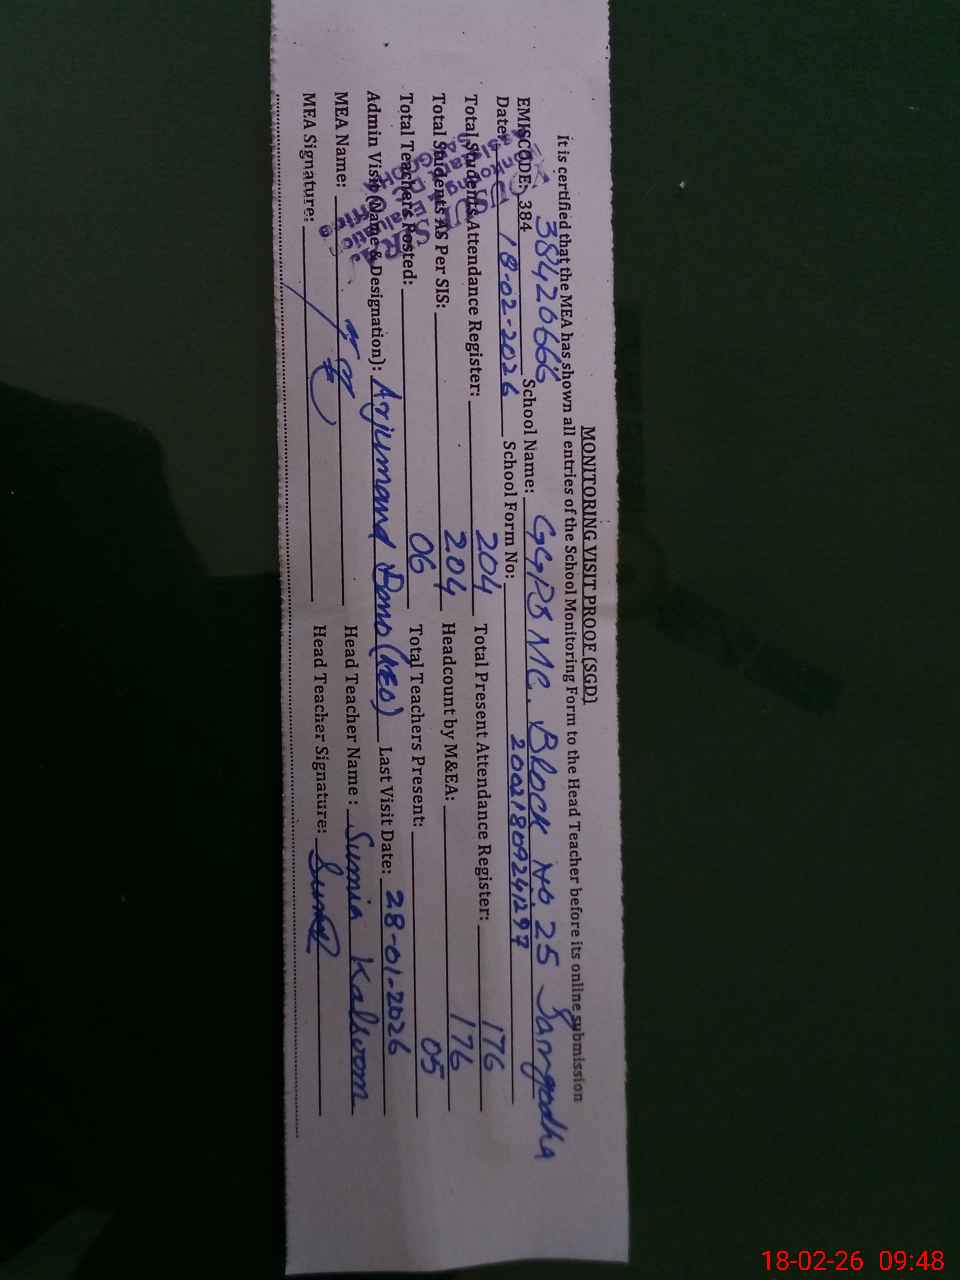 MONITORING VISIT PROOF (SGD)
It is certified that the MEA has shown all entries of the School Monitoring Form to the Head Teacher before its online submission
EMISCODE: 384 38420666 School Name: GGPS MC. Block No 25 Sargodha
Date: 18-02-2026 School Form No: 2002180924129
Total Students Attendance Register: 204 Total Present Attendance Register: 176
Total Students AS Per SIS: 204 Headcount by M&EA: 176
Total Teachers Posted: 06 Total Teachers Present: 05
Admin Visit Name & Designation): Arjumand Bano (AEO) Last Visit Date: 28-01-2026
MEA Name: Head Teacher Name : Sumia Kalsoom
MEA Signature: Head Teacher Signature:
18-02-26 09:48